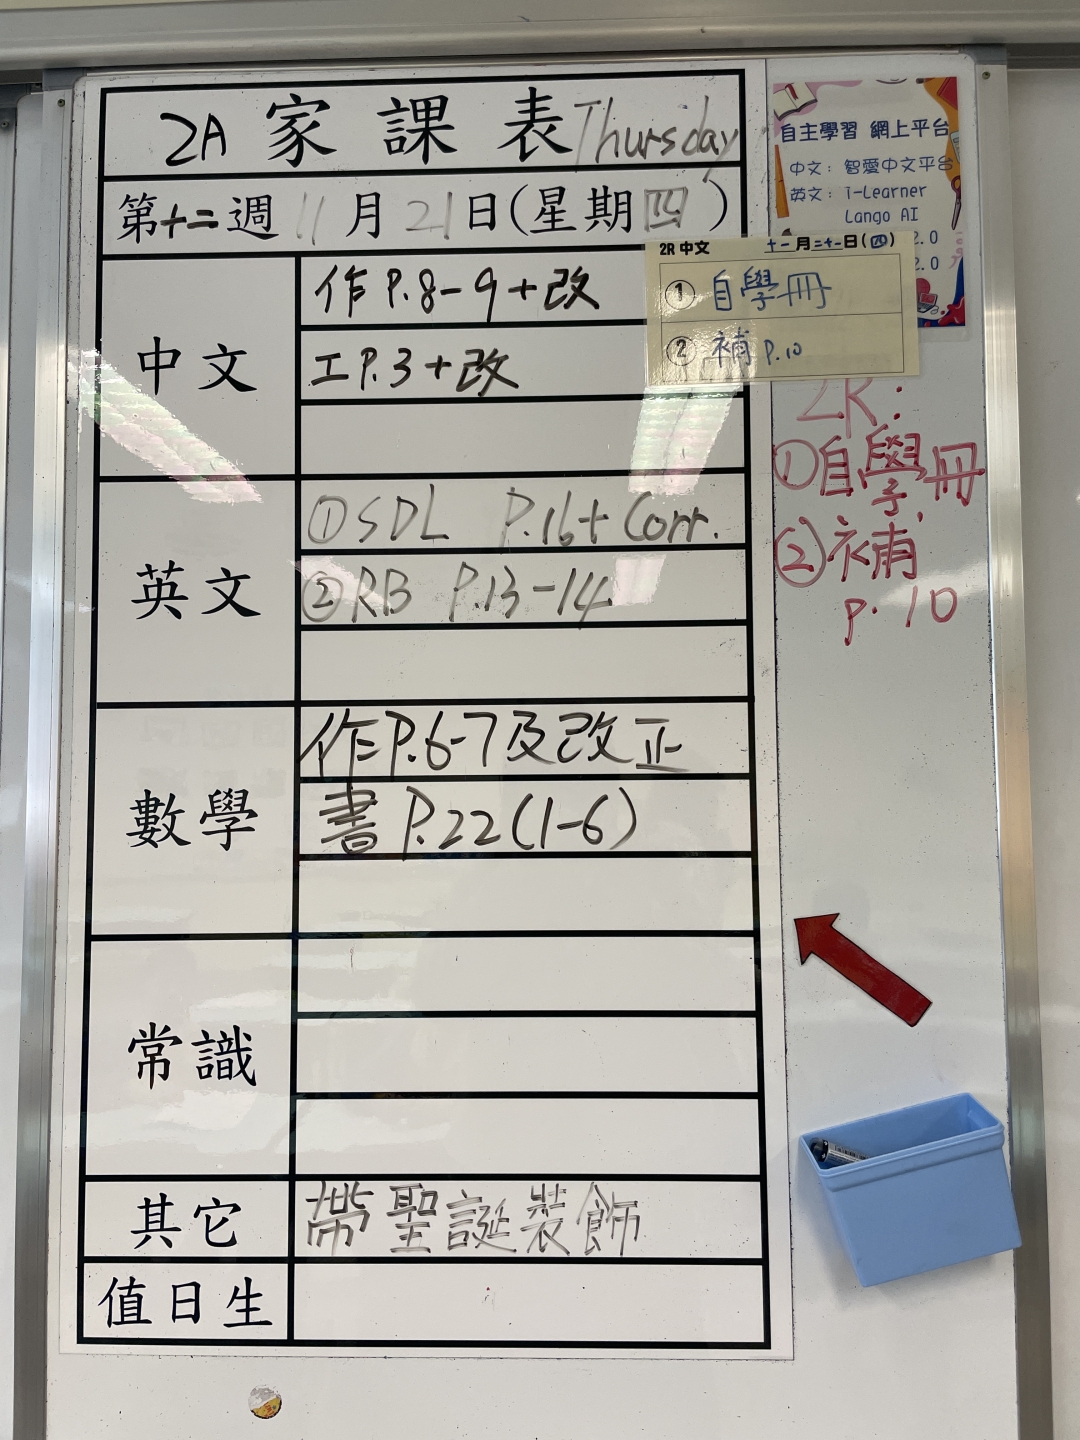 2A 家課表 Thursday
第十二週 11月21日(星期四)
中文
作 P.8-9+改
工 P.3+改
英文
①SDL P.16+Corr.
②RB P.13-14
數學
作P.6-7及改正
書 P.22(1-6)
常識
其它
帶聖誕裝飾
值日生
自主學習 網上平台
中文: 智愛中文平台
英文: i-Learner
Lango AI
2.0
2.0
2R 中文 十一月二十一日(四)
① 自學冊
② 補 P.10
2R:
①自學冊
②補
p.10